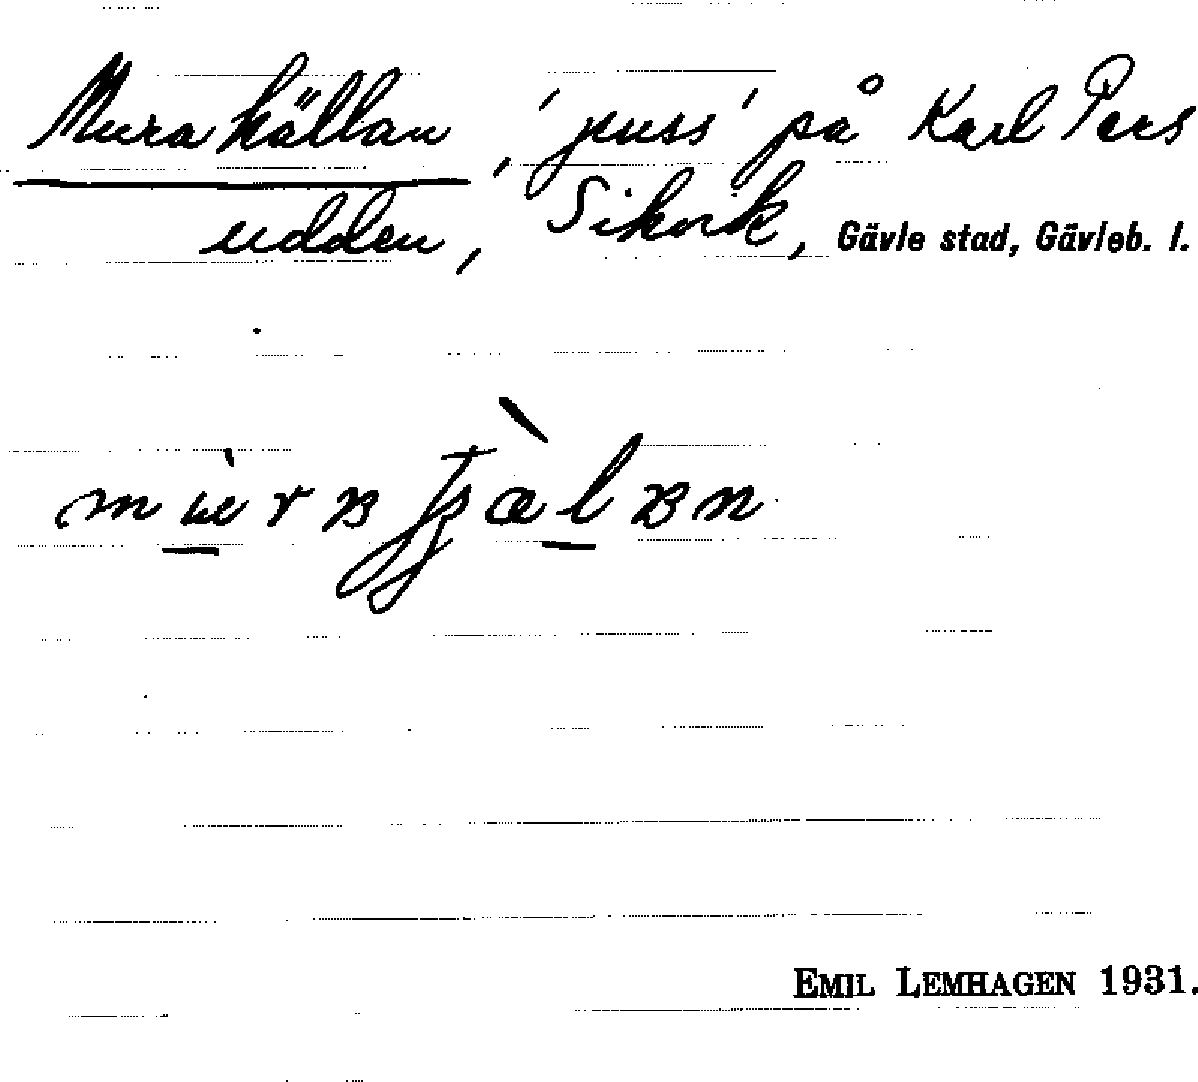 Murakällan, 'puss' på Karl Pers
udden, Sikvik, Gävle stad, Gävleb. l.
EMIL LEMHAGEN 1931.